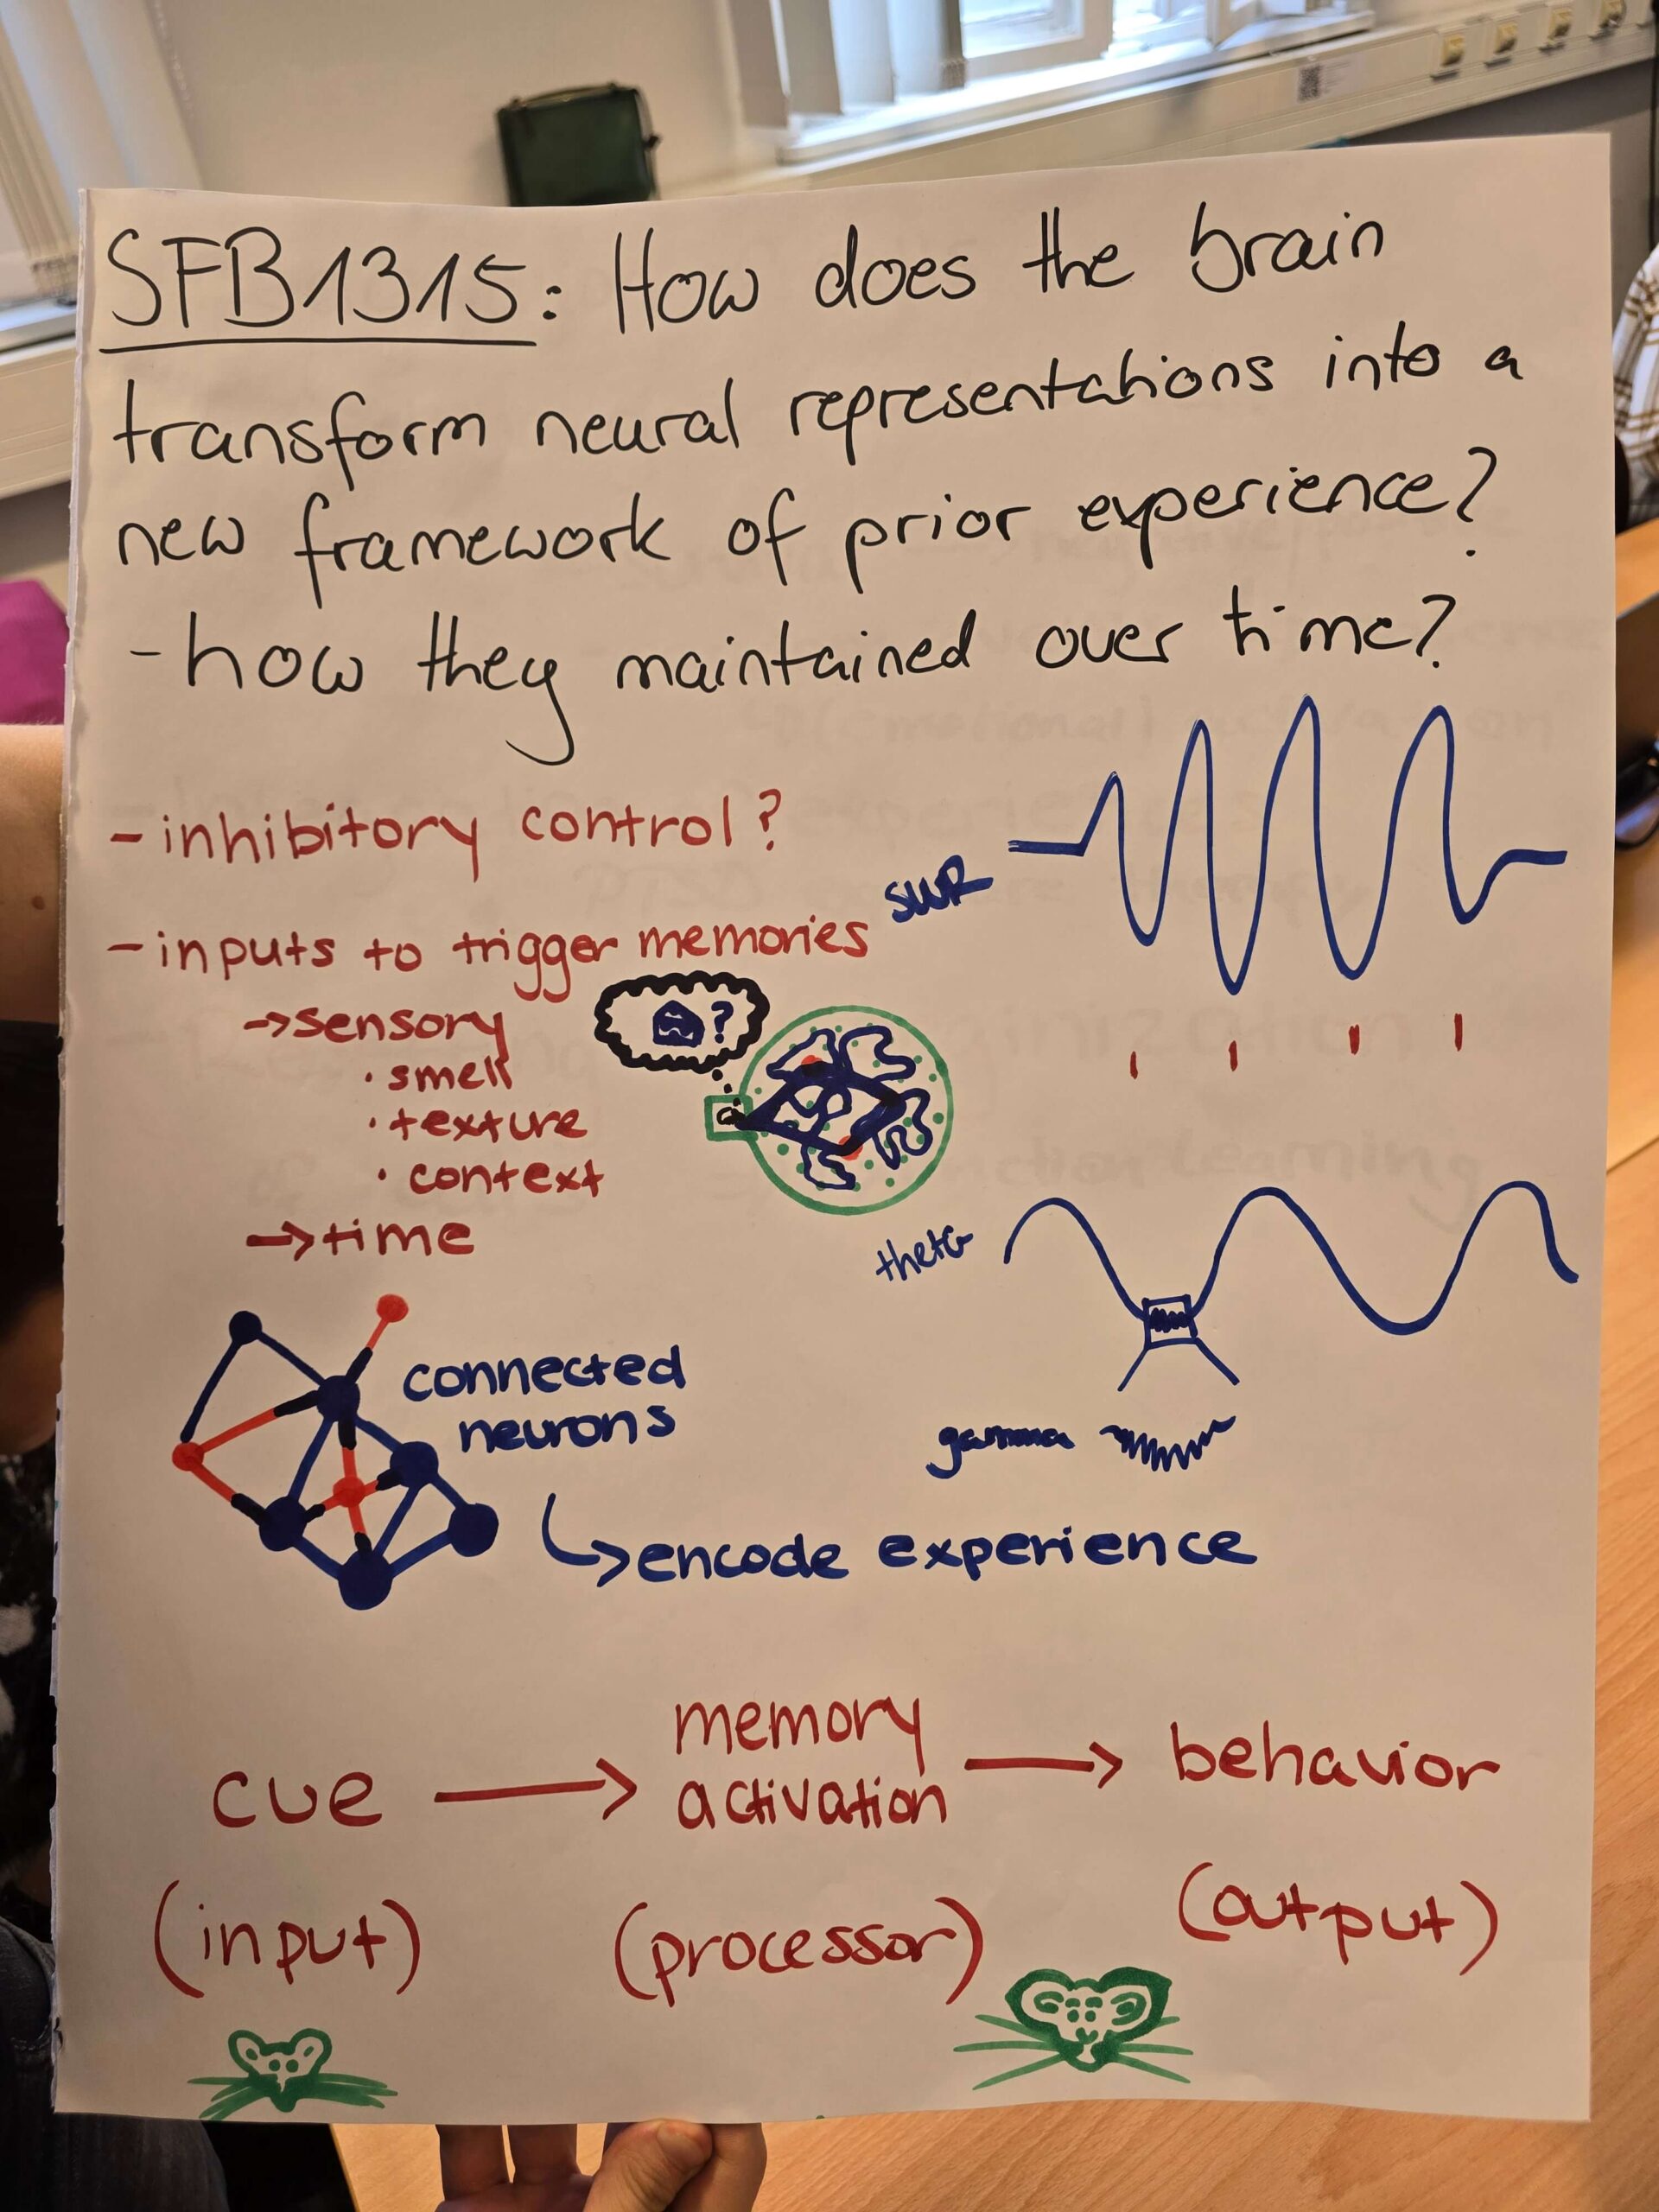 SFB1315: How does the brain
transform neural representations into a
new framework of prior experience?
- how they maintained over time?
- inhibitory control?
SWR
- inputs to trigger memories
→ sensory
· smell
?
· texture
· context
→ time
theta
connected
neurons
gamma
↳ encode experience
cue → memory activation → behavior
(input) (processor) (output)